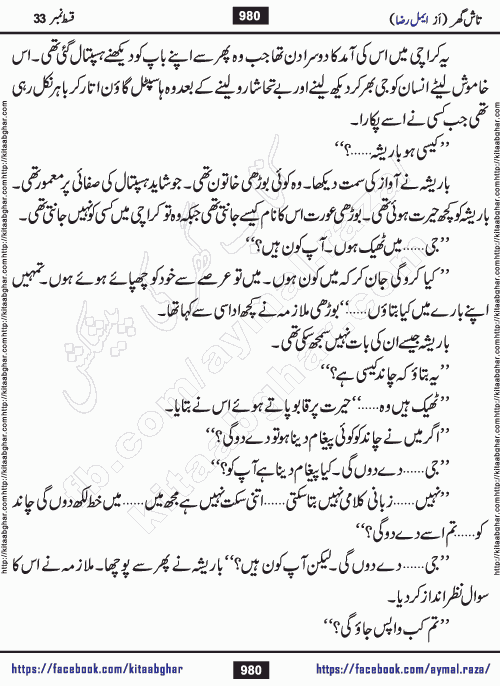 تاش گھر (از ایمل رضا)
980
قسط نمبر 33
یہ کراچی میں اس کی آمد کا دوسرا دن تھا جب وہ پھر سے اپنے باپ کو دیکھنے ہسپتال گئی تھی۔ اس
خاموش لیٹے انسان کو جی بھر کر دیکھ لینے اور بے تحاشا رو لینے کے بعد وہ ہاسپٹل گاؤن اتار کر باہر نکل رہی
تھی جب کسی نے اسے پکارا۔
’’کیسی ہو باریشہ......؟‘‘
باریشہ نے آواز کی سمت دیکھا۔ وہ کوئی بوڑھی خاتون تھی۔ جو شاید ہسپتال کی صفائی پر معمور تھی۔
باریشہ کو کچھ حیرت ہوئی تھی۔ بوڑھی عورت اس کا نام کیسے جانتی تھی جبکہ وہ تو کراچی میں کسی کو نہیں جانتی تھی۔
’’جی......میں ٹھیک ہوں۔ آپ کون ہیں؟‘‘
’’کیا کرو گی جان کر کہ میں کون ہوں۔ میں تو عرصے سے خود کو چھپائے ہوئے ہوں۔ تمہیں
اپنے بارے میں کیا بتاؤں......‘‘ بوڑھی ملازمہ نے کچھ اداسی سے کہا تھا۔
باریشہ جیسے ان کی بات نہیں سمجھ سکی تھی۔
’’یہ بتاؤ کہ چاند کیسی ہے؟‘‘
’’ٹھیک ہیں وہ......‘‘ حیرت پر قابو پاتے ہوئے اس نے بتایا۔
’’اگر میں نے چاند کو کوئی پیغام دینا ہو تو دے دو گی؟‘‘
’’جی......دے دوں گی۔ کیا پیغام دینا ہے آپ کو؟‘‘
’’نہیں......زبانی کلامی نہیں بتا سکتی......اتنی سکت نہیں ہے مجھ میں......میں خط لکھ دوں گی چاند
کو......تم اسے دے دو گی؟‘‘
’’جی......دے دوں گی۔ لیکن آپ کون ہیں؟‘‘ باریشہ نے پھر سے پوچھا۔ ملازمہ نے اس کا
سوال نظر انداز کر دیا۔
’’تم کب واپس جاؤ گی؟‘‘
https://facebook.com/kitaabghar
980
https://facebook.com/aymal.raza/
http://kitaabghar.com
کتاب گھر کی پیشکش
fb.com/aymal.raza
kitaabghar.com